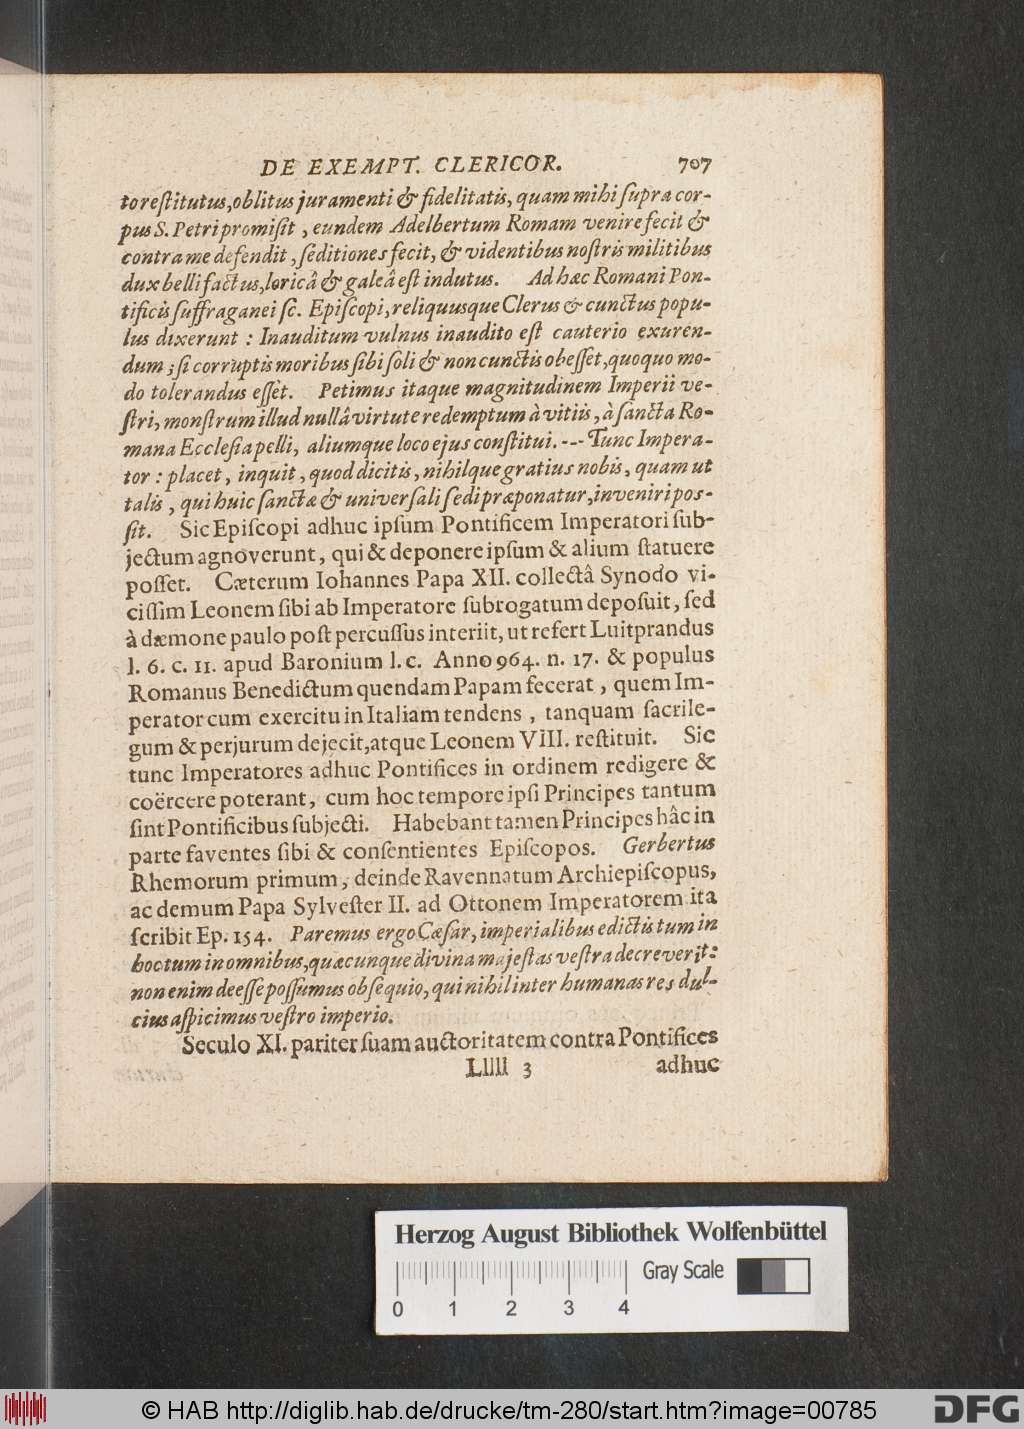 DE EXEMPT. CLERICOR. 707
to restitutus, oblitus juramenti & fidelitatis, quam mihi supra cor-
pus S. Petri promisit, eundem Adelbertum Romam venire fecit &
contra me defendit, seditiones fecit, & videntibus nostris militibus
dux belli factus, loricâ & galeâ est indutus. Ad hæc Romani Pon-
tificis suffraganei sc. Episcopi, reliquusque Clerus & cunctus popu-
lus dixerunt : Inauditum vulnus inaudito est cauterio exuren-
dum; si corruptis moribus sibi soli & non cunctis obesset, quoquo mo-
do tolerandus esset. Petimus itaque magnitudinem Imperii ve-
stri, monstrum illud nullâ virtute redemptum à vitiis, à sancta Ro-
mana Ecclesia pelli, aliumque loco ejus constitui. --- Tunc Impera-
tor : placet, inquit, quod dicitis, nihilque gratius nobis, quam ut
talis, qui huic sanctæ & universali sedi præponatur, inveniri pos-
sit. Sic Episcopi adhuc ipsum Pontificem Imperatori sub-
jectum agnoverunt, qui & deponere ipsum & alium statuere
posset. Cæterum Iohannes Papa XII. collectâ Synodo vi-
cissim Leonem sibi ab Imperatore subrogatum deposuit, sed
à dæmone paulo post percussus interiit, ut refert Luitprandus
l. 6. c. 11. apud Baronium l. c. Anno 964. n. 17. & populus
Romanus Benedictum quendam Papam fecerat, quem Im-
perator cum exercitu in Italiam tendens, tanquam sacrile-
gum & perjurum dejecit, atque Leonem VIII. restituit. Sic
tunc Imperatores adhuc Pontifices in ordinem redigere &
coërcere poterant, cum hoc tempore ipsi Principes tantum
sint Pontificibus subjecti. Habebant tamen Principes hâc in
parte faventes sibi & consentientes Episcopos. Gerbertus
Rhemorum primum, deinde Ravennatum Archiepiscopus,
ac demum Papa Sylvester II. ad Ottonem Imperatorem ita
scribit Ep. 154. Paremus ergo Cæsar, imperialibus edictis tum in
hoc tum in omnibus, quæcunque divina majestas vestra decreverit:
non enim deesse possumus obsequio, qui nihil inter humanas res dul-
cius aspicimus vestro imperio.
Seculo XI. pariter suam auctoritatem contra Pontifices
Lllll 3 adhuc
Herzog August Bibliothek Wolfenbüttel
Gray Scale
0 1 2 3 4
© HAB http://diglib.hab.de/drucke/tm-280/start.htm?image=00785
DFG